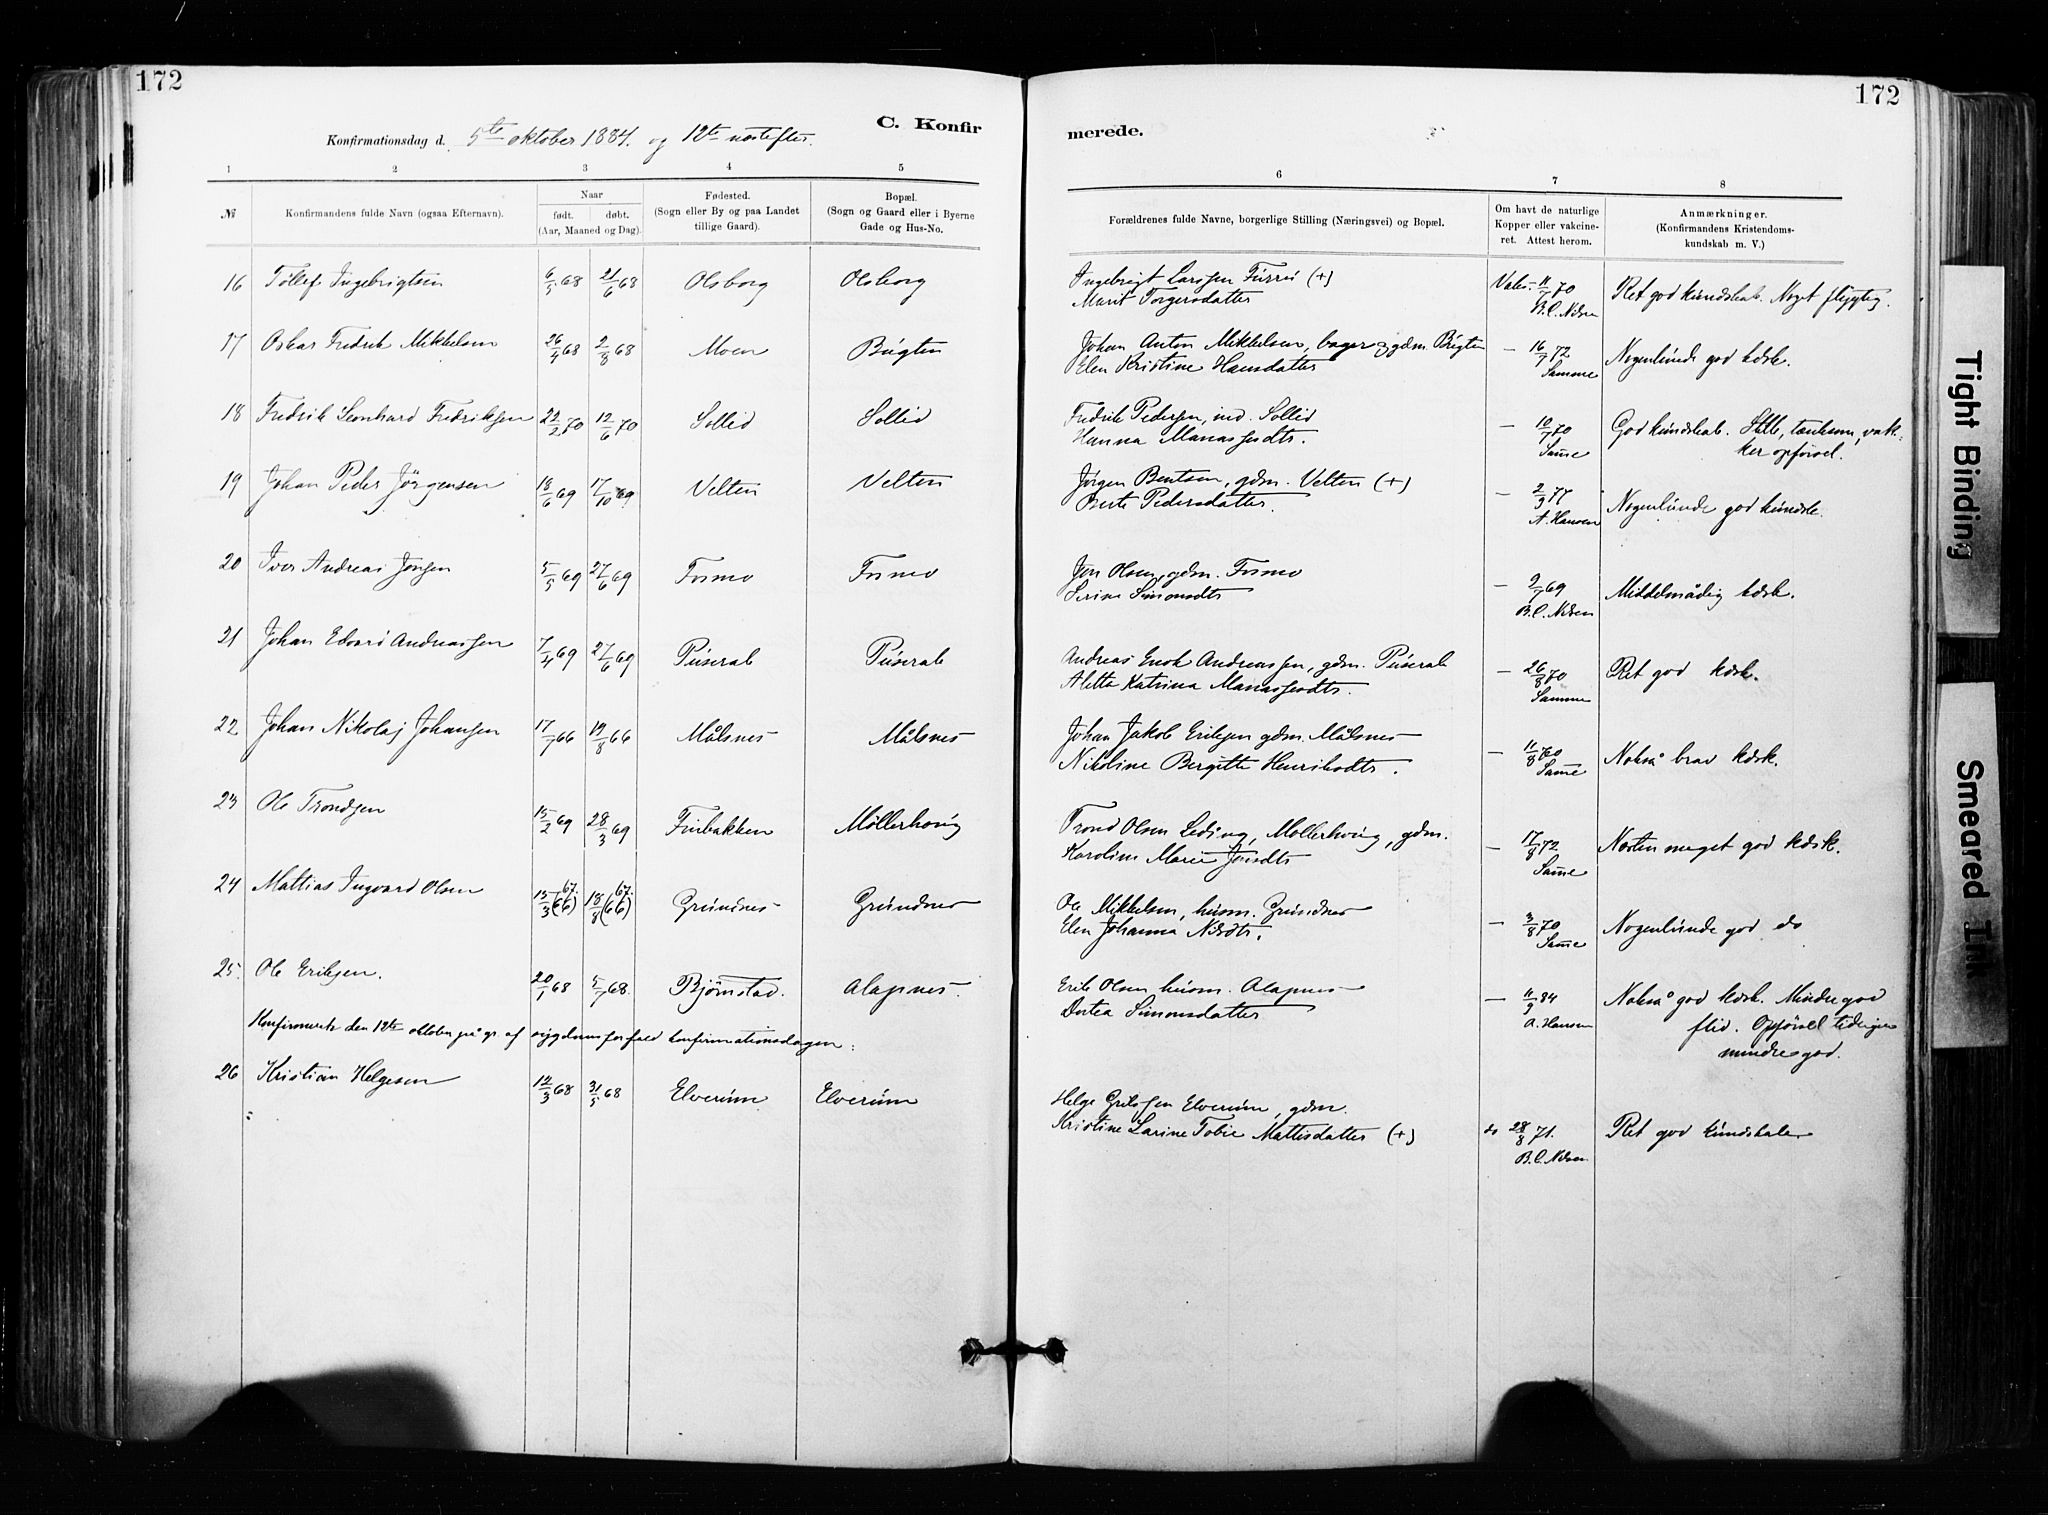 172
172
C. Konfir
merede.
Konfirmationsdag d. 5te oktober 1884. og 12te næstefter.
1 2 3 4 5
6 7 8
№
Konfirmandens fulde Navn (ogsaa Efternavn).
Naar
født. døbt.
(Aar, Maaned og Dag).
Fødested.
(Sogn eller By og paa Landet
tillige Gaard).
Bopæl.
(Sogn og Gaard eller i Byerne
Gade og Hus-No.
Forældrenes fulde Navne, borgerlige Stilling (Næringsvei) og Bopæl.
Om havt de naturlige
Kopper eller vakcine-
ret. Attest herom.
Anmærkninger.
(Konfirmandens Kristendoms-
kundskab m. V.)
16 Tollef Ingebrigtsen 6/5 68 21/6 68 Olsborg Olsborg
Ingebrigt Larssen (+)
Marit Torgersdatter
11/7 70
B.C. Nilsen
Ret god kundskab. Noget flygtig.
17 Oskar Fredrik Mikkelsen 26/4 68 2/8 68 Moen Bugten
Johan Anton Mikkelsen, bager og gdm. Bugten
Elen Kristine Hansdatter
— 16/7 72
Samme
Nogenlunde god kdsk.
18 Fredrik Leonhard Fredriksen 22/2 70 12/6 70 Sollid Sollid
Fredrik Pedersen, ind. Sollid
Hanna Manassesdtr.
— 10/7 70
Samme
God kundskab. Stille, tænksom, vak-
ker opførsel.
19 Johan Peder Jörgensen 18/6 69 17/10 69 Velten Velten
Jørgen Bentsen, gdm. Velten (+)
Berte Pedersdatter.
— 2/3 77
A. Hansen
Nogenlunde god kundsk.
20 Iver Andreas Jonsen 5/5 69 27/6 69 Fosmo Fosmo
Jon Olsen, gdm. Fosmo
Serine Simonsdtr
— 2/7 69
B.C. Nilsen
Middelmådig kdsk.
21 Johan Edvard Andreassen 7/4 69 27/6 69 Puserab Puserab
Andreas Enok Andreassen, gdm. Puserab
Aletta Katrina Manassesdtr.
— 26/8 70
Samme
Ret god kdsk.
22 Johan Nikolaj Johansen 17/7 66 19/8 66 Målsnes Målsnes
Johan Jakob Eriksen gdm. Målsnes
Nikoline Bergitte Henriksdtr.
— 11/8 70
Samme
Nokså brav kdsk.
23 Ole Trondsen 15/2 69 28/3 69 Furbakken Møllerhaug
Trond Olsen Leding, Møllerhaug, gdm.
Karoline Marie Jonsdtr
— 17/8 72
Samme
Næsten meget god kdsk.
24 Mattias Ingvard Olsen 15/3 (66) 67. 18/8 (66) 67. Grundnes Grundnes
Ole Mikkelsen, husm. Grundnes
Elen Johanna Nilsdtr.
— 3/8 70
Samme
Nogenlunde god do
25. Ole Eriksen. 20/1 68 5/7 68. Bjørnstad. Alapnes.
Erik Olsen husm. Alapnes
Dortea Simonsdatter
— 11/9 84
A. Hansen
Nokså god kdsk. Mindre god
flid. Opførsel tidligere
mindre god.
Konfirmeret den 12te oktober på gr. af sygdomsforfald konfirmationsdagen.
26 Kristian Helgesen 12/3 68 31/5 68 Elverum Elverum
Helge Erikssen Elverum, gdm.
Kristine Larine Tobie Mattisdatter (+)
do 28/8 71.
B.C. Nilsen
Ret god kundskab
Tight Binding
Smeared Ink